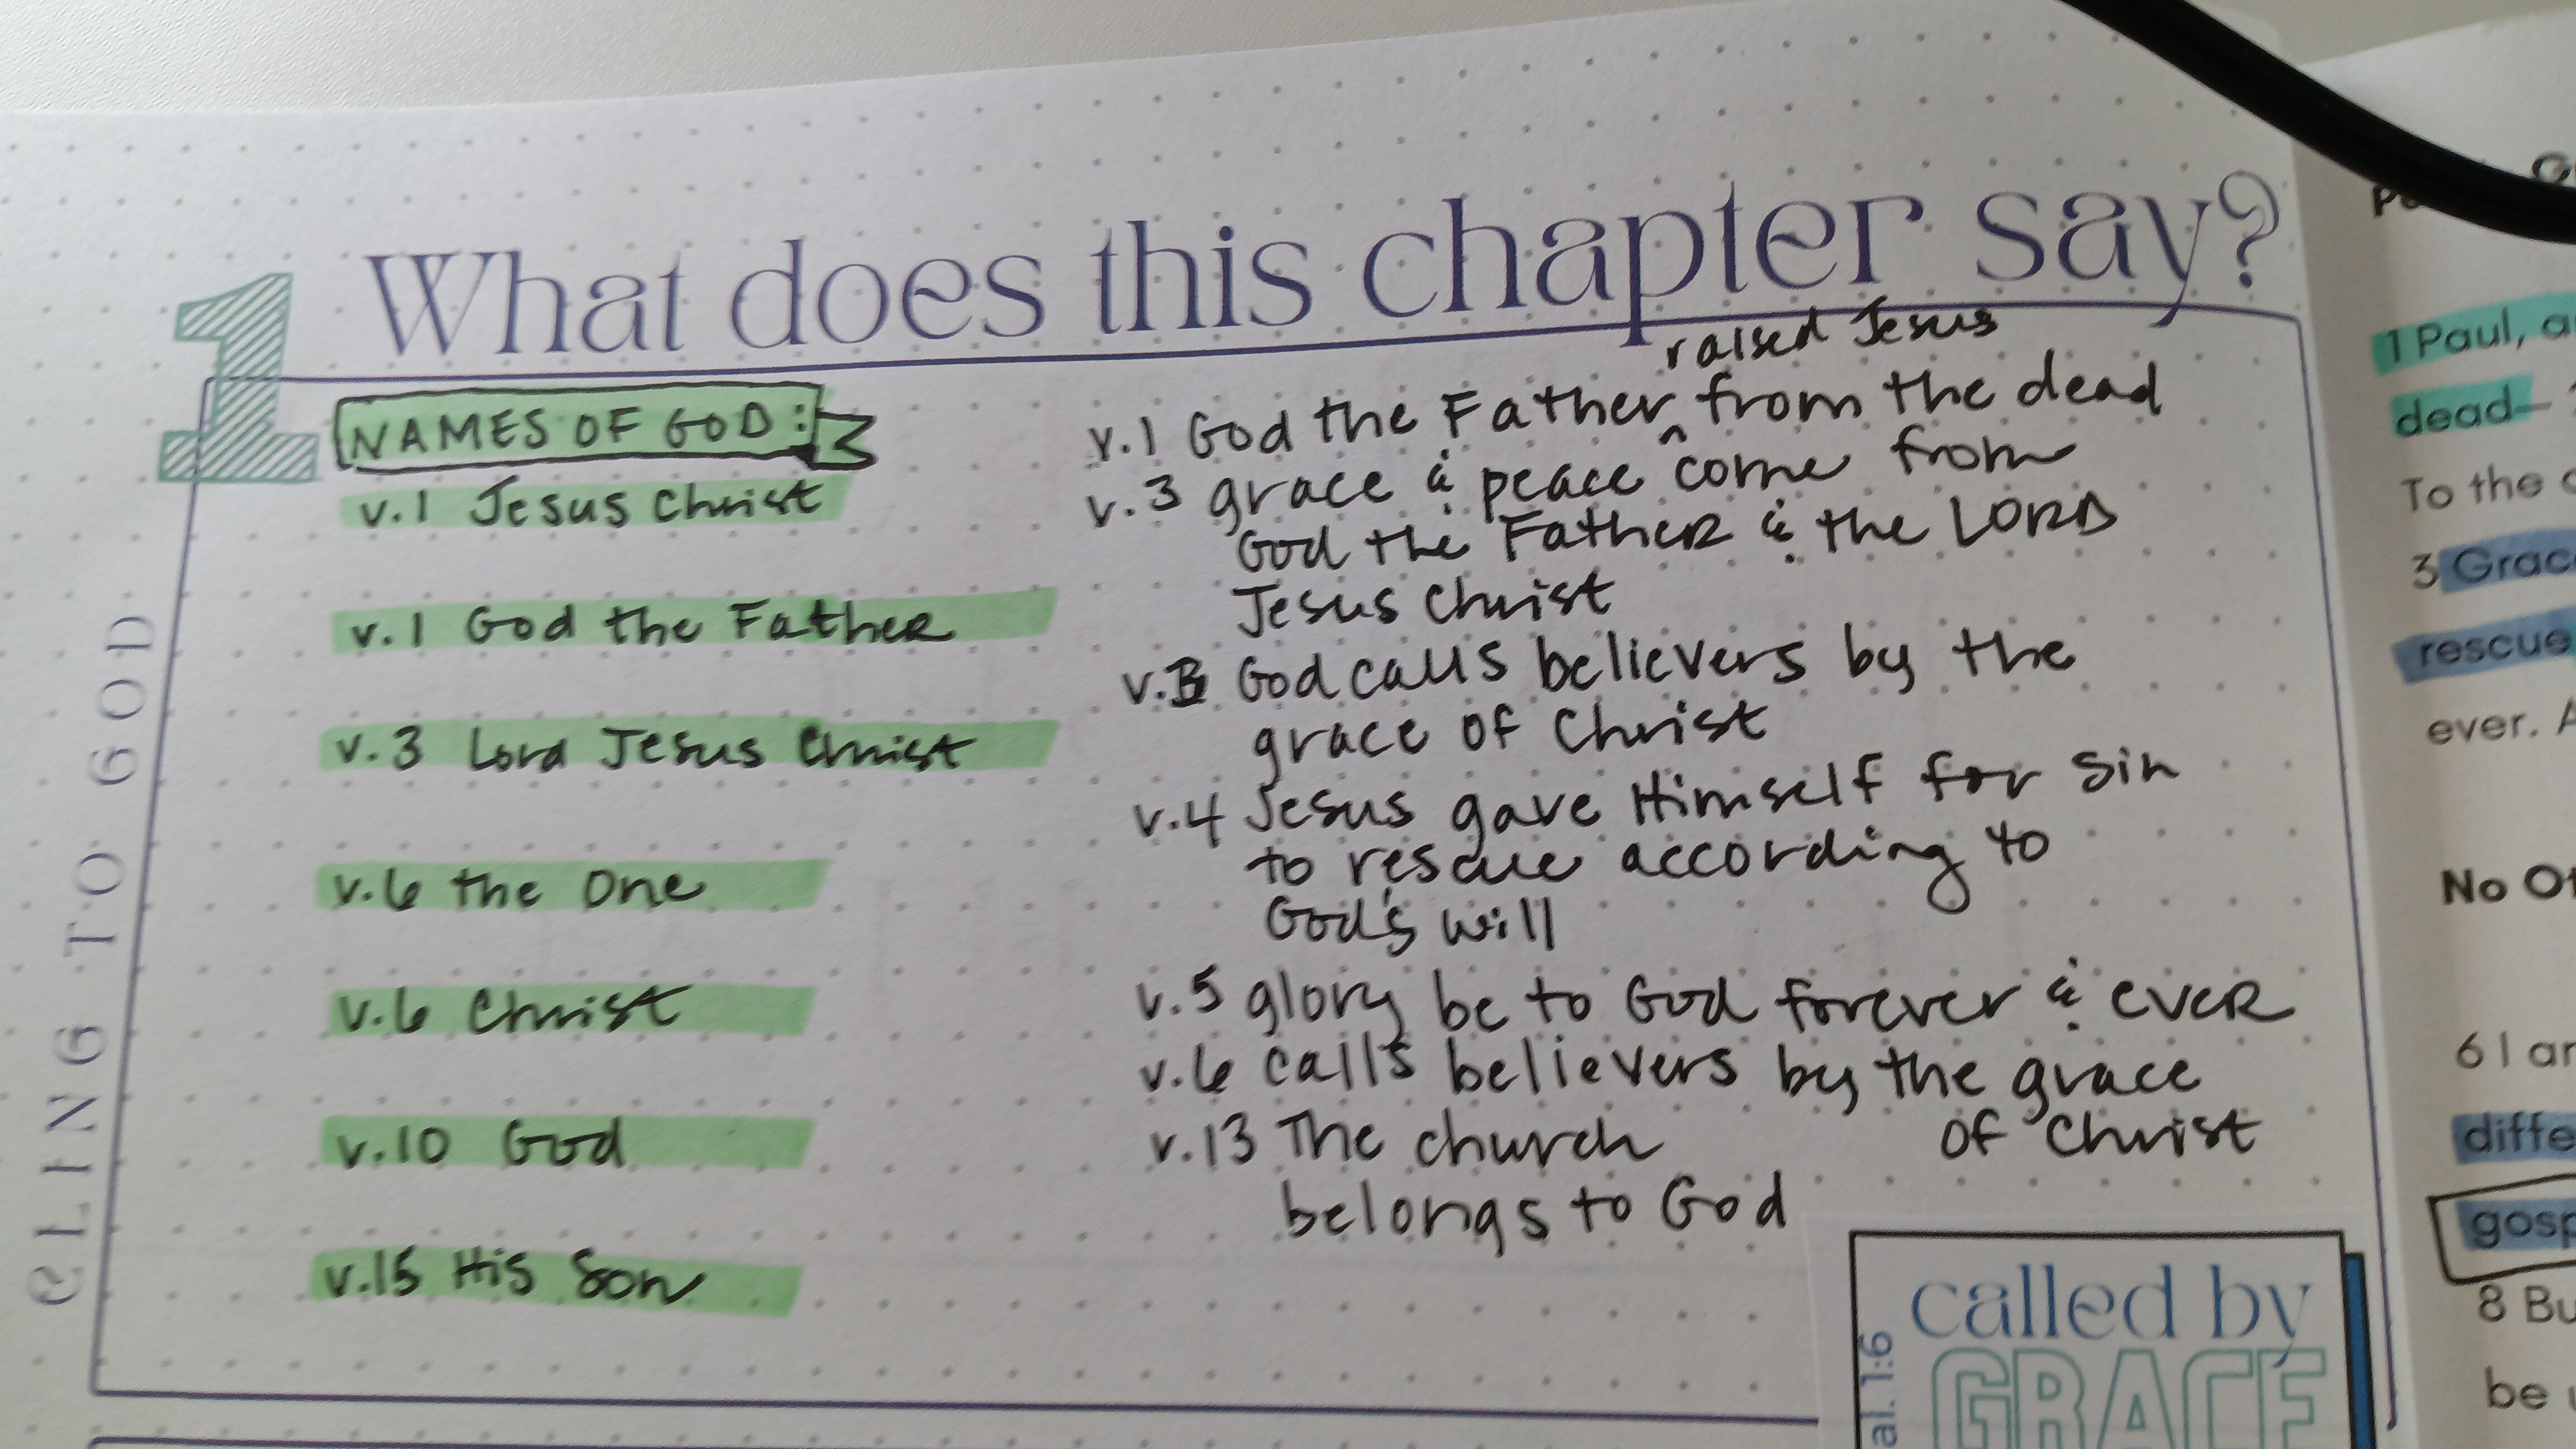 What does this chapter say?
1
CLING TO GOD
NAMES OF GOD:
v.1 Jesus Christ
v.1 God the Father
v.3 Lord Jesus Christ
v.6 the One
v.6 Christ
v.10 God
v.15 His Son
raised Jesus
v.1 God the Father ^ from the dead
v.3 grace & peace come from
God the Father & the LORD
Jesus Christ
God calls believers by the
grace of Christ
v.4 Jesus gave Himself for sin
to rescue according to
God's will
v.5 glory be to God forever & ever
v.6 calls believers by the grace
of Christ
v.13 The church
belongs to God
called by
GRACE
al. 1:6
1 Paul, a
dead—
To the
3 Grac
rescue
ever. A
No Ot
6 I ar
diffe
gosp
8 Bu
be